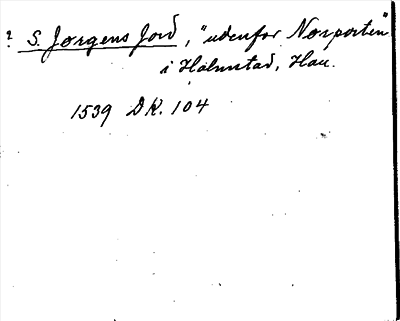 ? S. Jørgens Jord, "udenfor Nørporten"
i Halmstad, Hall.
1539 DK. 104